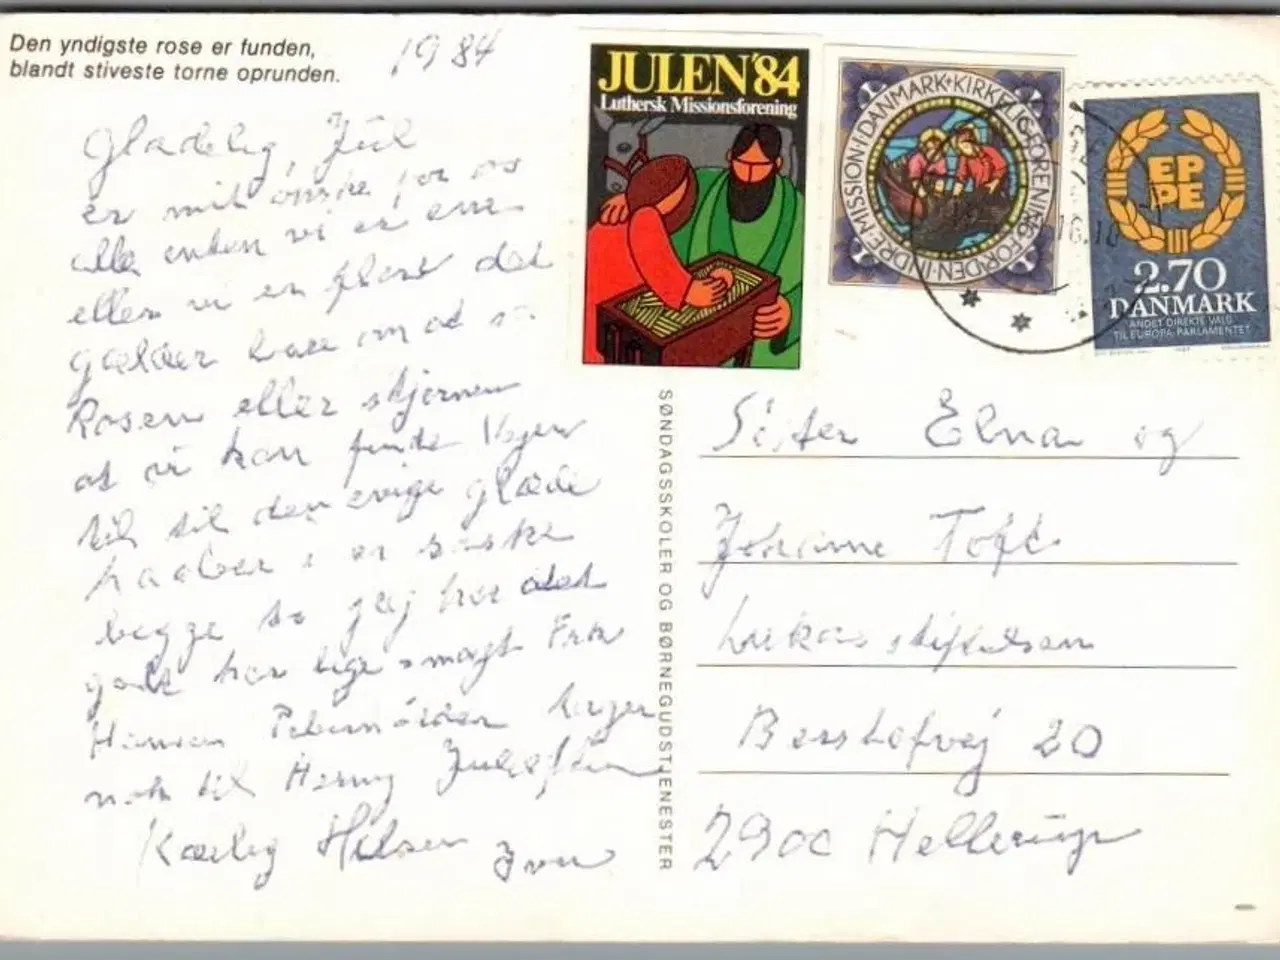 Den yndigste rose er funden,
blandt stiveste torne oprunden.
1984
Glædelig Jul
er mit ønske for os
alle enten vi er ene
eller vi er flere det
gælder bare om at se
Rosen eller stjernen
at vi kan finde Vejen
til til den evige glæde
haaber i er raske
begge to jeg har det
godt har lige
Hansen
nok til Henny
Kærlig Hilsen
JULEN'84
Luthersk Missionsforening
KIRKELIG·FORENING FOR DEN·INDRE·MISSION·I·DANMARK
1 1 1 1
EP
PE
2.70
DANMARK
ANDET DIREKTE VALG
TIL EUROPA-PARLAMENTET
SØNDAGSSKOLER OG BØRNEGUDSTJENESTER
Søster Elna og
Johanne Toft
Lukasstiftelsen
Bernstofvej 20
2900 Hellerup